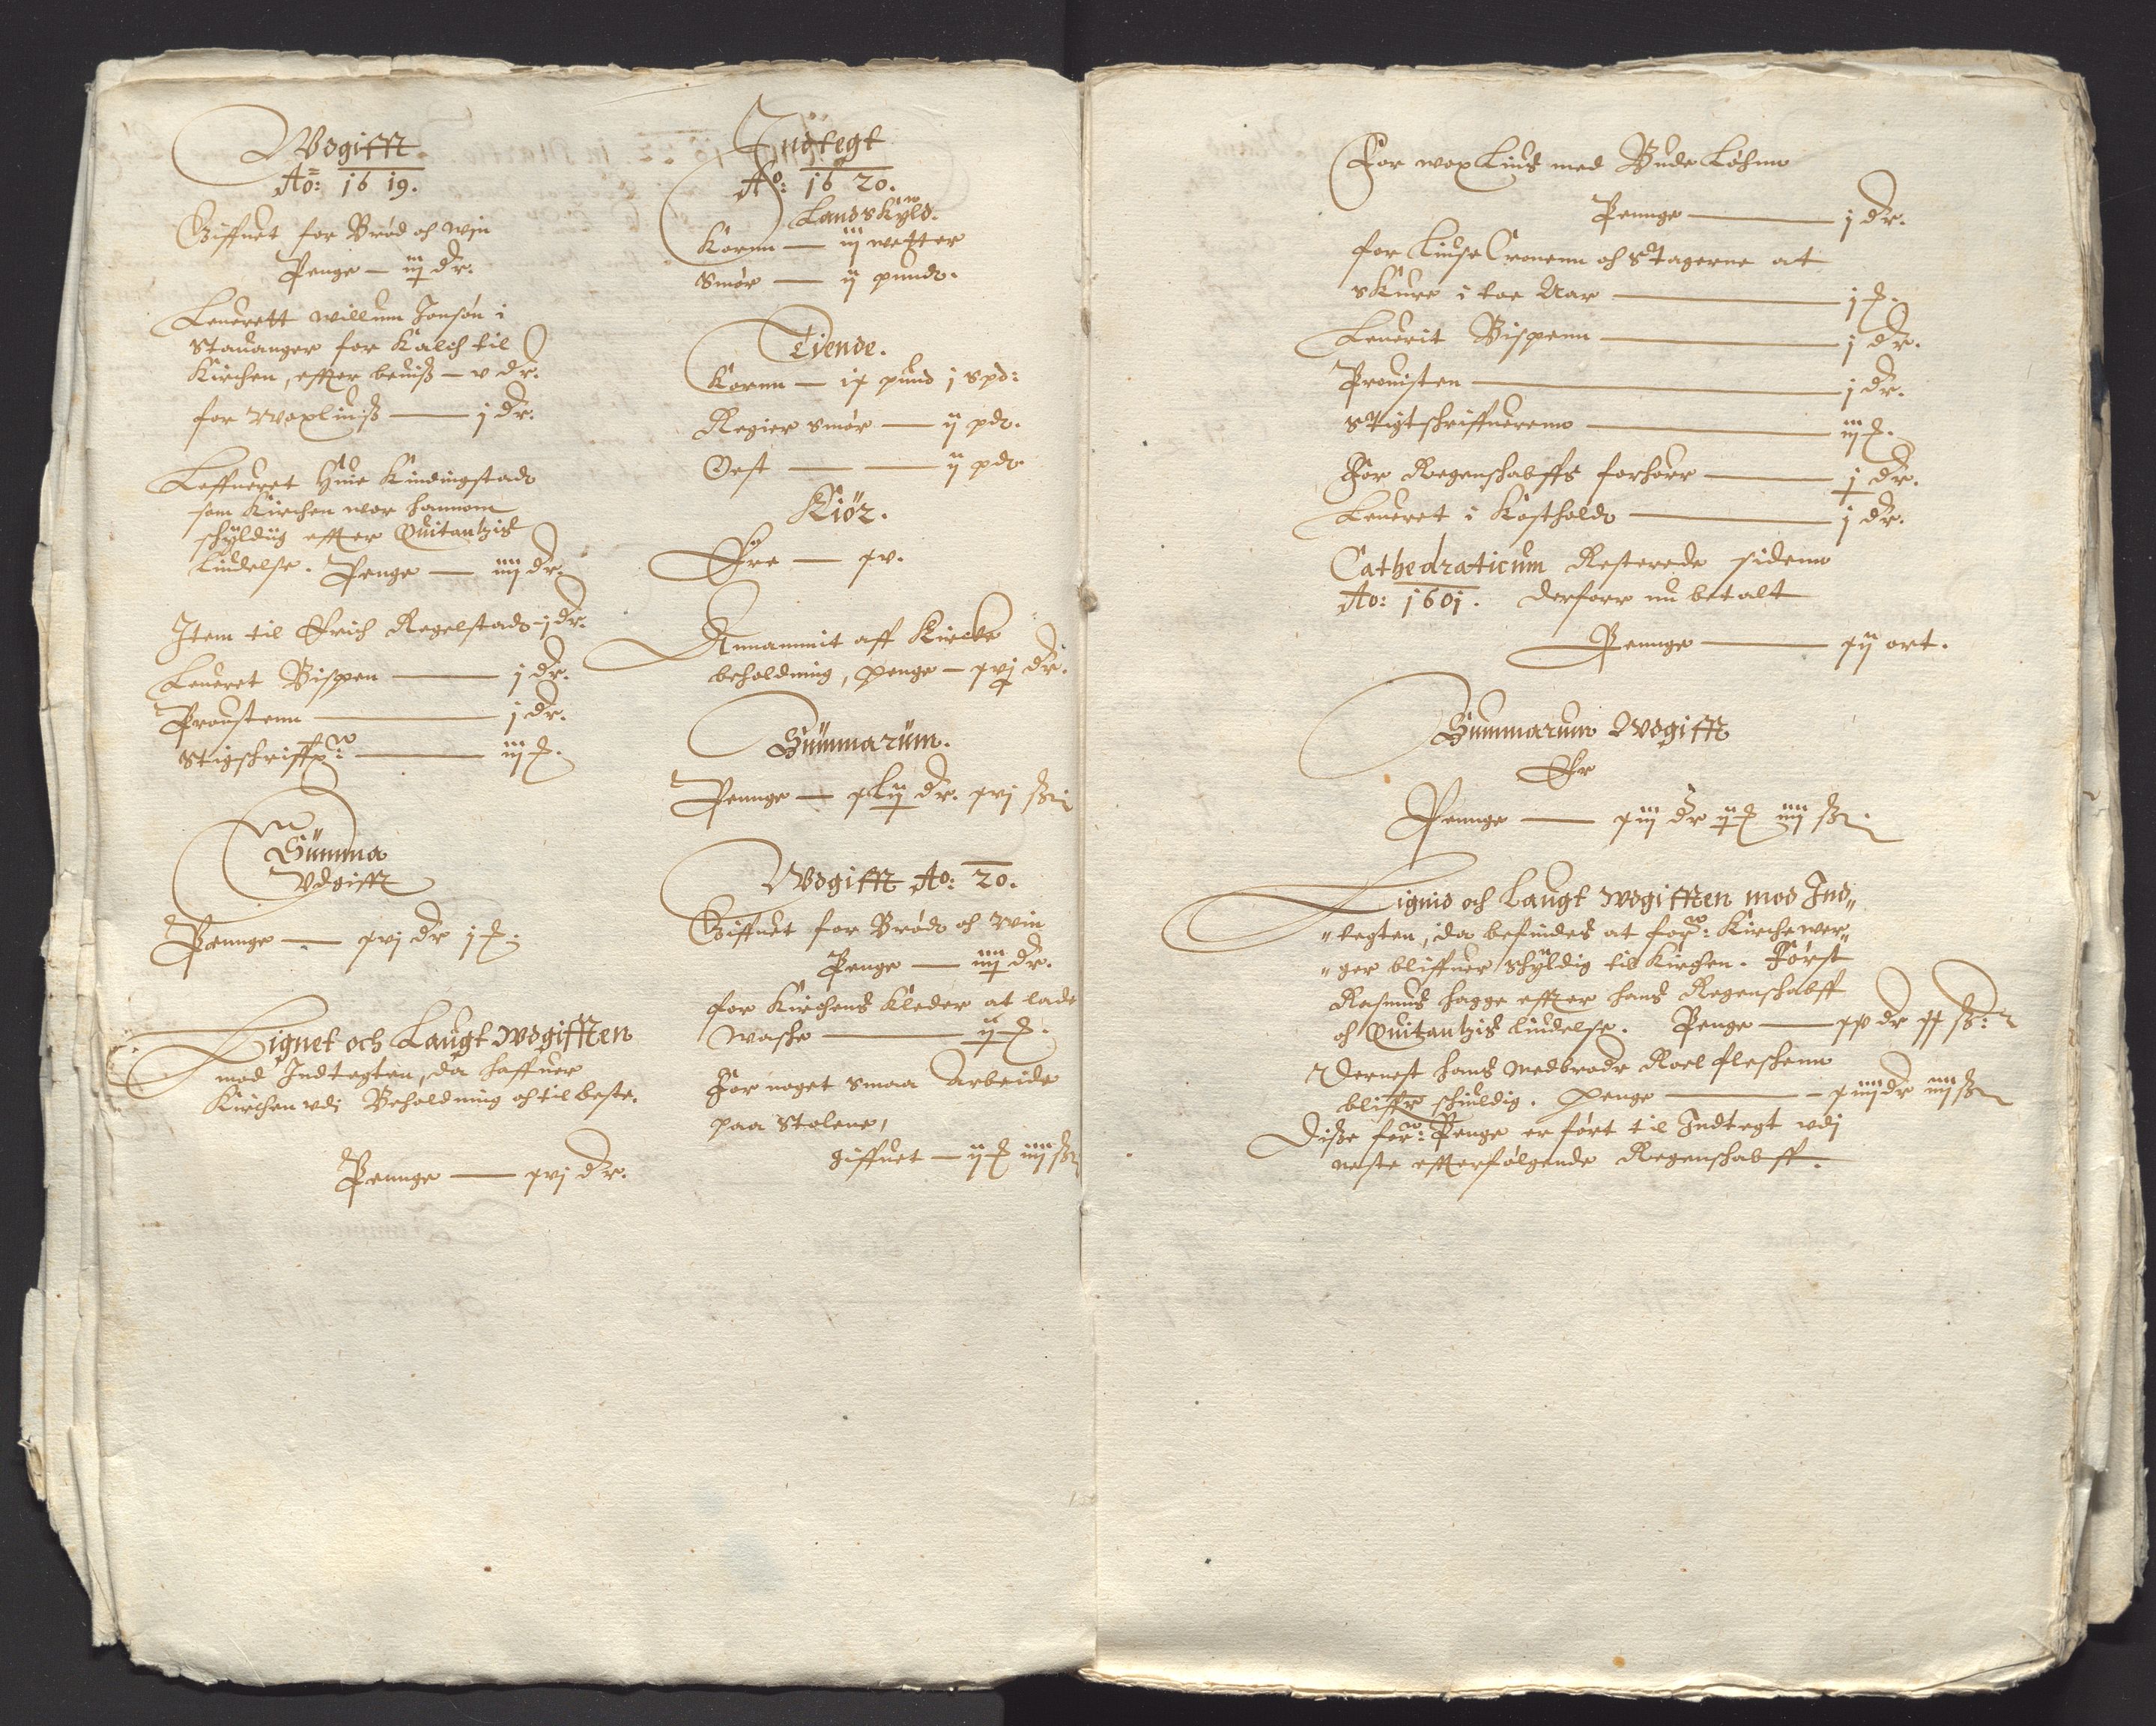 Wdgifft
Ao: 1619.
Giffuet for Brød och Wjn
Penge — iij dr.
Leuerett Willum Jonsøn i
Stauanger for Kalch til
Kirchen, effter beuiß — v dr.
for Woxliuß — j dr.
Leffueret Kindingstad
som Kirchen war hannom
schyldiig effter Quitantzis
liudelse. Penge — iiij dr.
Item til Erich Regelstad — j dr.
Leueret Bispen — j dr.
Proustenn — j dr.
Stigschriffr: — iij
Summa
Vdgifft
Pennge — xvj dr j
Lignet och Laugt Wdgifften
mod Indtegten, da haffuer
Kirchen vdj Beholdning och til beste.
Pennge — xvj dr.
Indtegt
Ao: 1620.
Landskyld.
Kornn — iij wetter
Smør — ij pund.
Tiende.
Kornn — ix pund j spd:
Regier smør — ij pd.
Oest — ij pd.
Kiør.
Ere — xv.
Annammit aff Kircke
beholdning, penge — xvj dr.
Summarum.
Pennge — xlij dr. xvj ß
Wdgifft Ao: 20.
Giffuet for Brød och Win
Penge — iiij dr.
for Kirchens Kleder at lade
waske — ij
For noget smaa Arbeide
paa Stolene,
giffuet — ij iiij ß
For wox Liuß med Bude Løhnn
Pennge — j dr.
for Liuse Cronenn och Stagerne at
skure i toe Aar — j
Leuerit Bispenn — j dr.
Prouisten — j dr.
Stigtschriffuerenn — iij
For Regenschabffs forhørr — j dr.
Leueret i Kosthold — j dr.
Cathedraticum Resterede sidenn
Ao: 1601. derforr nu betalt
Pennge — xij ort.
Summarum Wdgifft
Er
Pennge — xiij dr ij iiij ß
Lignid och Laugt Wdgifften mod Ind„
„tegten, da befindes at forr: Kirchewer„
„ger bliffuer schyldig til Kirchen. Først
Rasmus Hagge effter hans Regenschabff
och Quitantzis liudelse. Penge — xv dr xx ß:
Dernest hans Medbrodr Roel fleschenn
bliffr schiuldig. Penge — xiiij dr iiij ß
Diße forr: Penge er ført til Indtegt vdj
neste effterfølgende Regenschabff.